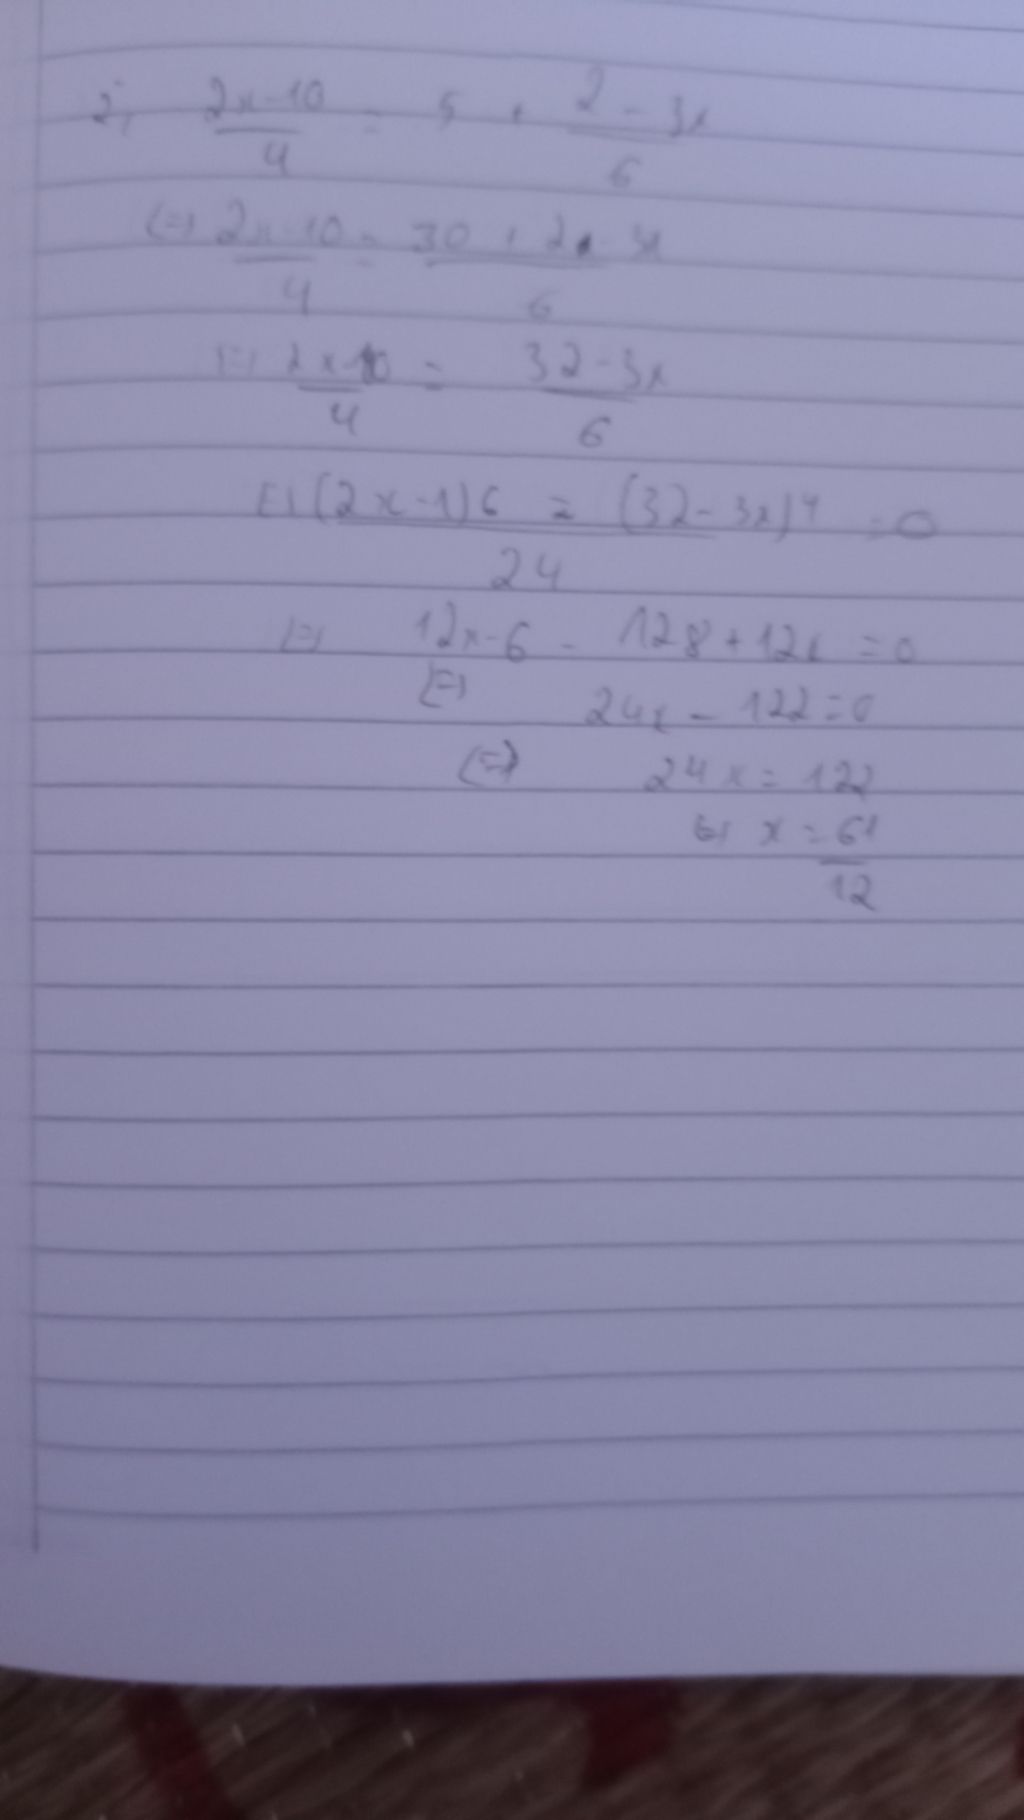 2, 2x-10/4 = 5 + 2-3x/6
(=) 2x-10/4 = 30+2-3x/6
(=) 2x-10/4 = 32-3x/6
(=) (2x-1)6 = (32-3x)4/24 = 0
(=) 12x-6 - 128+12x = 0
(=) 24x - 122 = 0
(=) 24x = 122
(=) x = 61/12